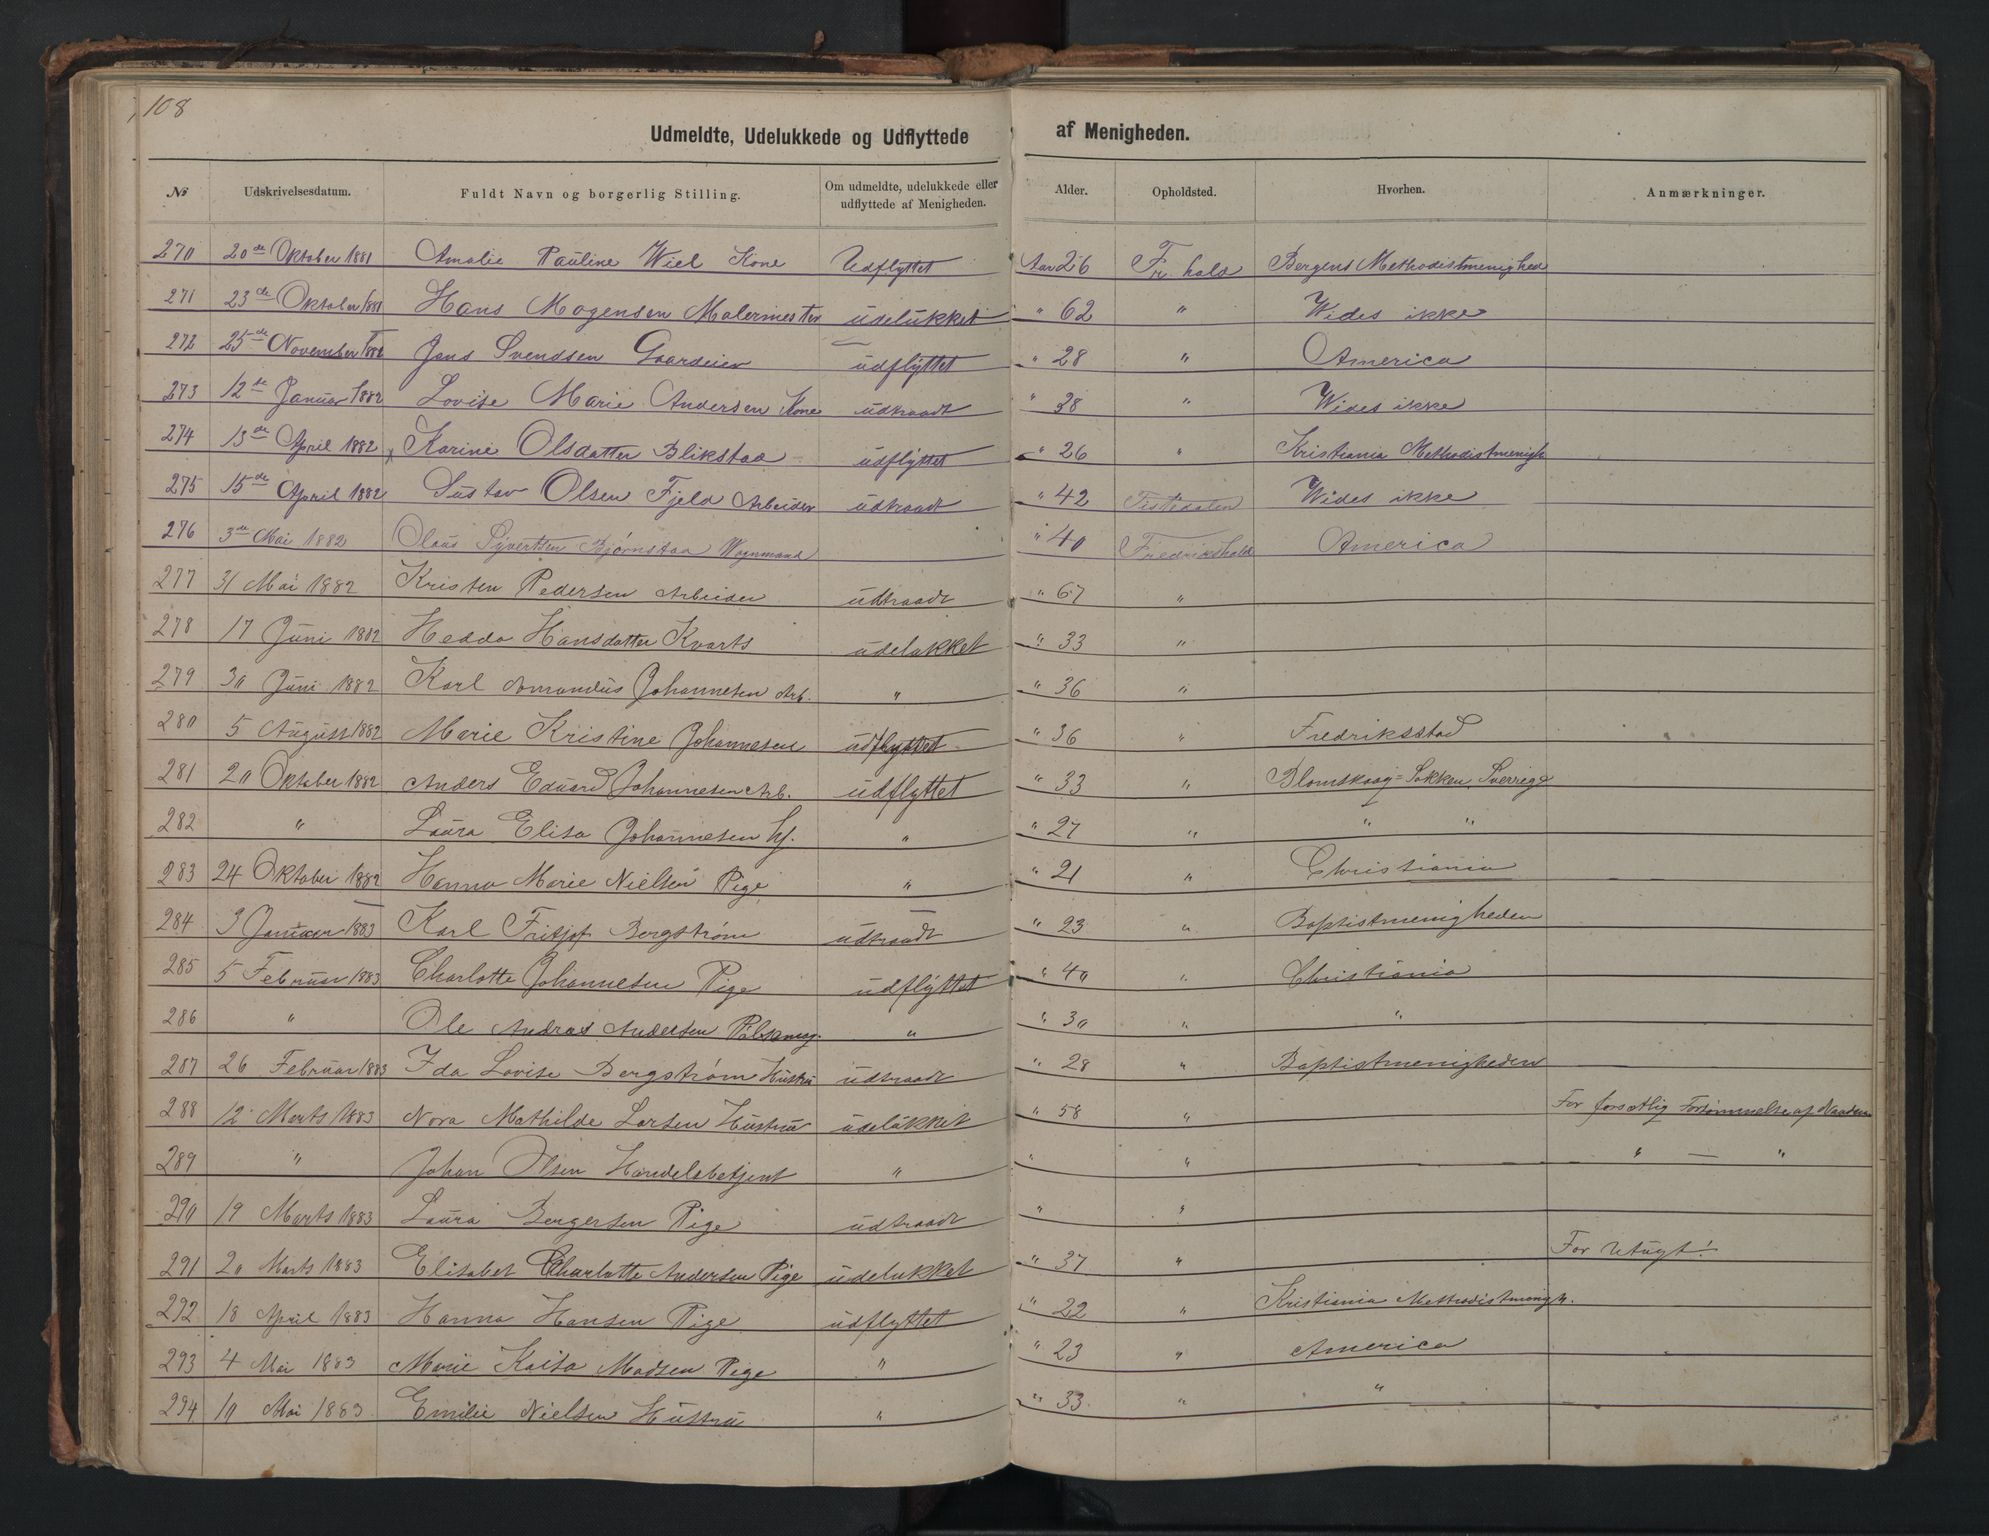 108
Udmeldte, Udelukkede og Udflyttede af Menigheden.
No Udskrivelsesdatum. Fuldt Navn og borgerlig Stilling. Om udmeldte, udelukkede eller udflyttede af Menigheden. Alder. Opholdsted. Hvorhen. Anmærkninger.
270 20de Oktober 1881 Amalie Pauline Wiel Kone Udflyttet Aar 26 Fr. hald Bergens Methodistmenighed
271 23de Oktober 1881 Hans Mogensen Malermester udelukket " 62 " Wides ikke
272 25de November 1881 Jens Svendsen udflyttet " 28 " America
273 12te Januar 1882 Lovise Marie Andersen Kone udtraadt " 38 " Wides ikke
274 13de April 1882 Karine Olsdatter Blikstad udflyttet " 26 " Kristiania Methodistmenigh
275 15de April 1882 Gustav Olsen Fjeld Arbeider udtraadt " 42 Tistedalen Wides ikke
276 3de Mai 1882 Olaus Syvertsen Bjørnstad Vognmand " 40 Fredrikshald America
277 31 Mai 1882 Kristen Pedersen Arbeider udtraadt " 67 "
278 17 Juni 1882 Hedda Hansdatter Kvarts udelukket " 33 "
279 30 Juni 1882 Karl Amandus Johannesen Arb. " " 36 "
280 5 August 1882 Marie Kristine Johannesen udflyttet " 36 " Fredriksstad
281 20 Oktober 1882 Anders Eduard Johannesen Arb. udflyttet " 33 " Blomskoog=Sokken, Sverrige
282 " Laura Elisa Johannesen " " 27 " " "
283 24 Oktober 1882 Hanna Marie Nielsen Pige " " 21 " Christiania
284 3 Januar 1883 Karl Fritjof Bergstrøm udtraadt " 23 " Baptistmenigheden
285 5 Februar 1883 Charlotte Johannesen Pige udflyttet " 40 " Christiania
286 " Ole Andreas Andersen " " 30 " "
287 26 Februar 1883 Ida Lovise Bergstrøm Hustru udtraadt " 28 " Baptistmenigheden
288 12 Marts 1883 Nora Mathilde Larsen Hustru udelukket " 58 " For forsætlig Forsømmelse af Naadem
289 " Johan Olsen Handelsbetjent " " " " — "
290 19 Marts 1883 Laura Bergersen Pige udtraadt " "
291 20 Marts 1883 Elisabet Charlotte Andersen Pige udelukket " 37 " For Utugt!
292 18 April 1883 Hanna Hansen Pige udflyttet " 22 " Kristiania Methodistmenigh.
293 4 Mai 1883 Marie Kaisa Madsen Pige " " 23 " America
294 10 Mai 1883 Emilie Nielsen Hustru " " 33 " "